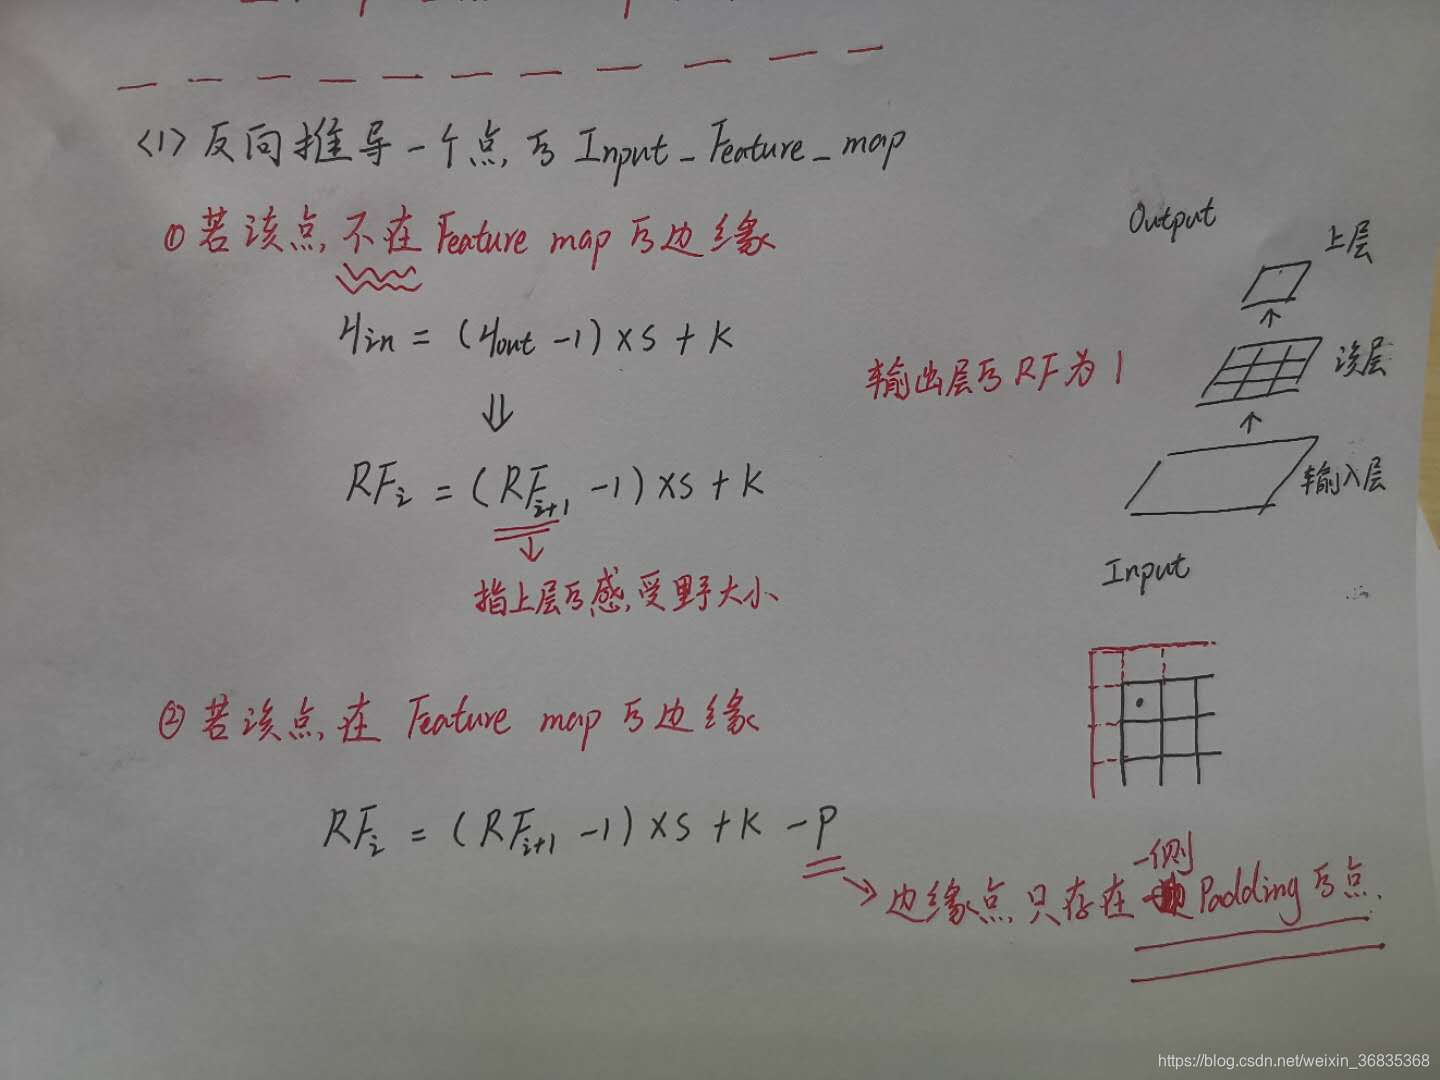 <1> 反向推导一个点的 Input_Feature_map
① 若该点不在 Feature map 的边缘
Hin = (Hout -1)×S + K
⇓
RFi = (RFi+1 -1)×S + K
↓
指上层的感受野大小
② 若该点在 Feature map 的边缘
RFi = (RFi+1 -1)×S + K - P
→ 边缘点只存在一侧 Padding的点.
Output
上层
该层
输出层的 RF 为 1
输入层
Input
https://blog.csdn.net/weixin_36835368